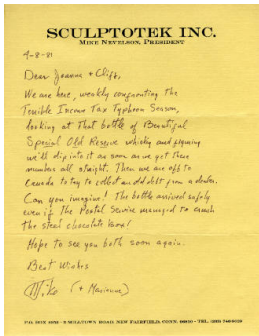 SCULPTOTEK INC.
MIKE NEVELSON, PRESIDENT
4-8-81
Dear Joanne + Cliff,
We are here, weakly confronting the
Terrible Income Tax Typhoon Season,
looking at that bottle of Beautiful
Special Old Reserve whisky and figuring
we'll dip into it as soon as we get these
numbers all straight. Then we are off to
Canada to try to collect an old debt from a dealer.
Can you imagine! The bottle arrived safely
even if the Postal Service managed to crush
the steel chocolate box!
Hope to see you both soon again.
Best Wishes
Mike (+ Marianne)
P.O. BOX • SCULPTOWN ROAD, NEW FAIRFIELD, CONN. • TEL.